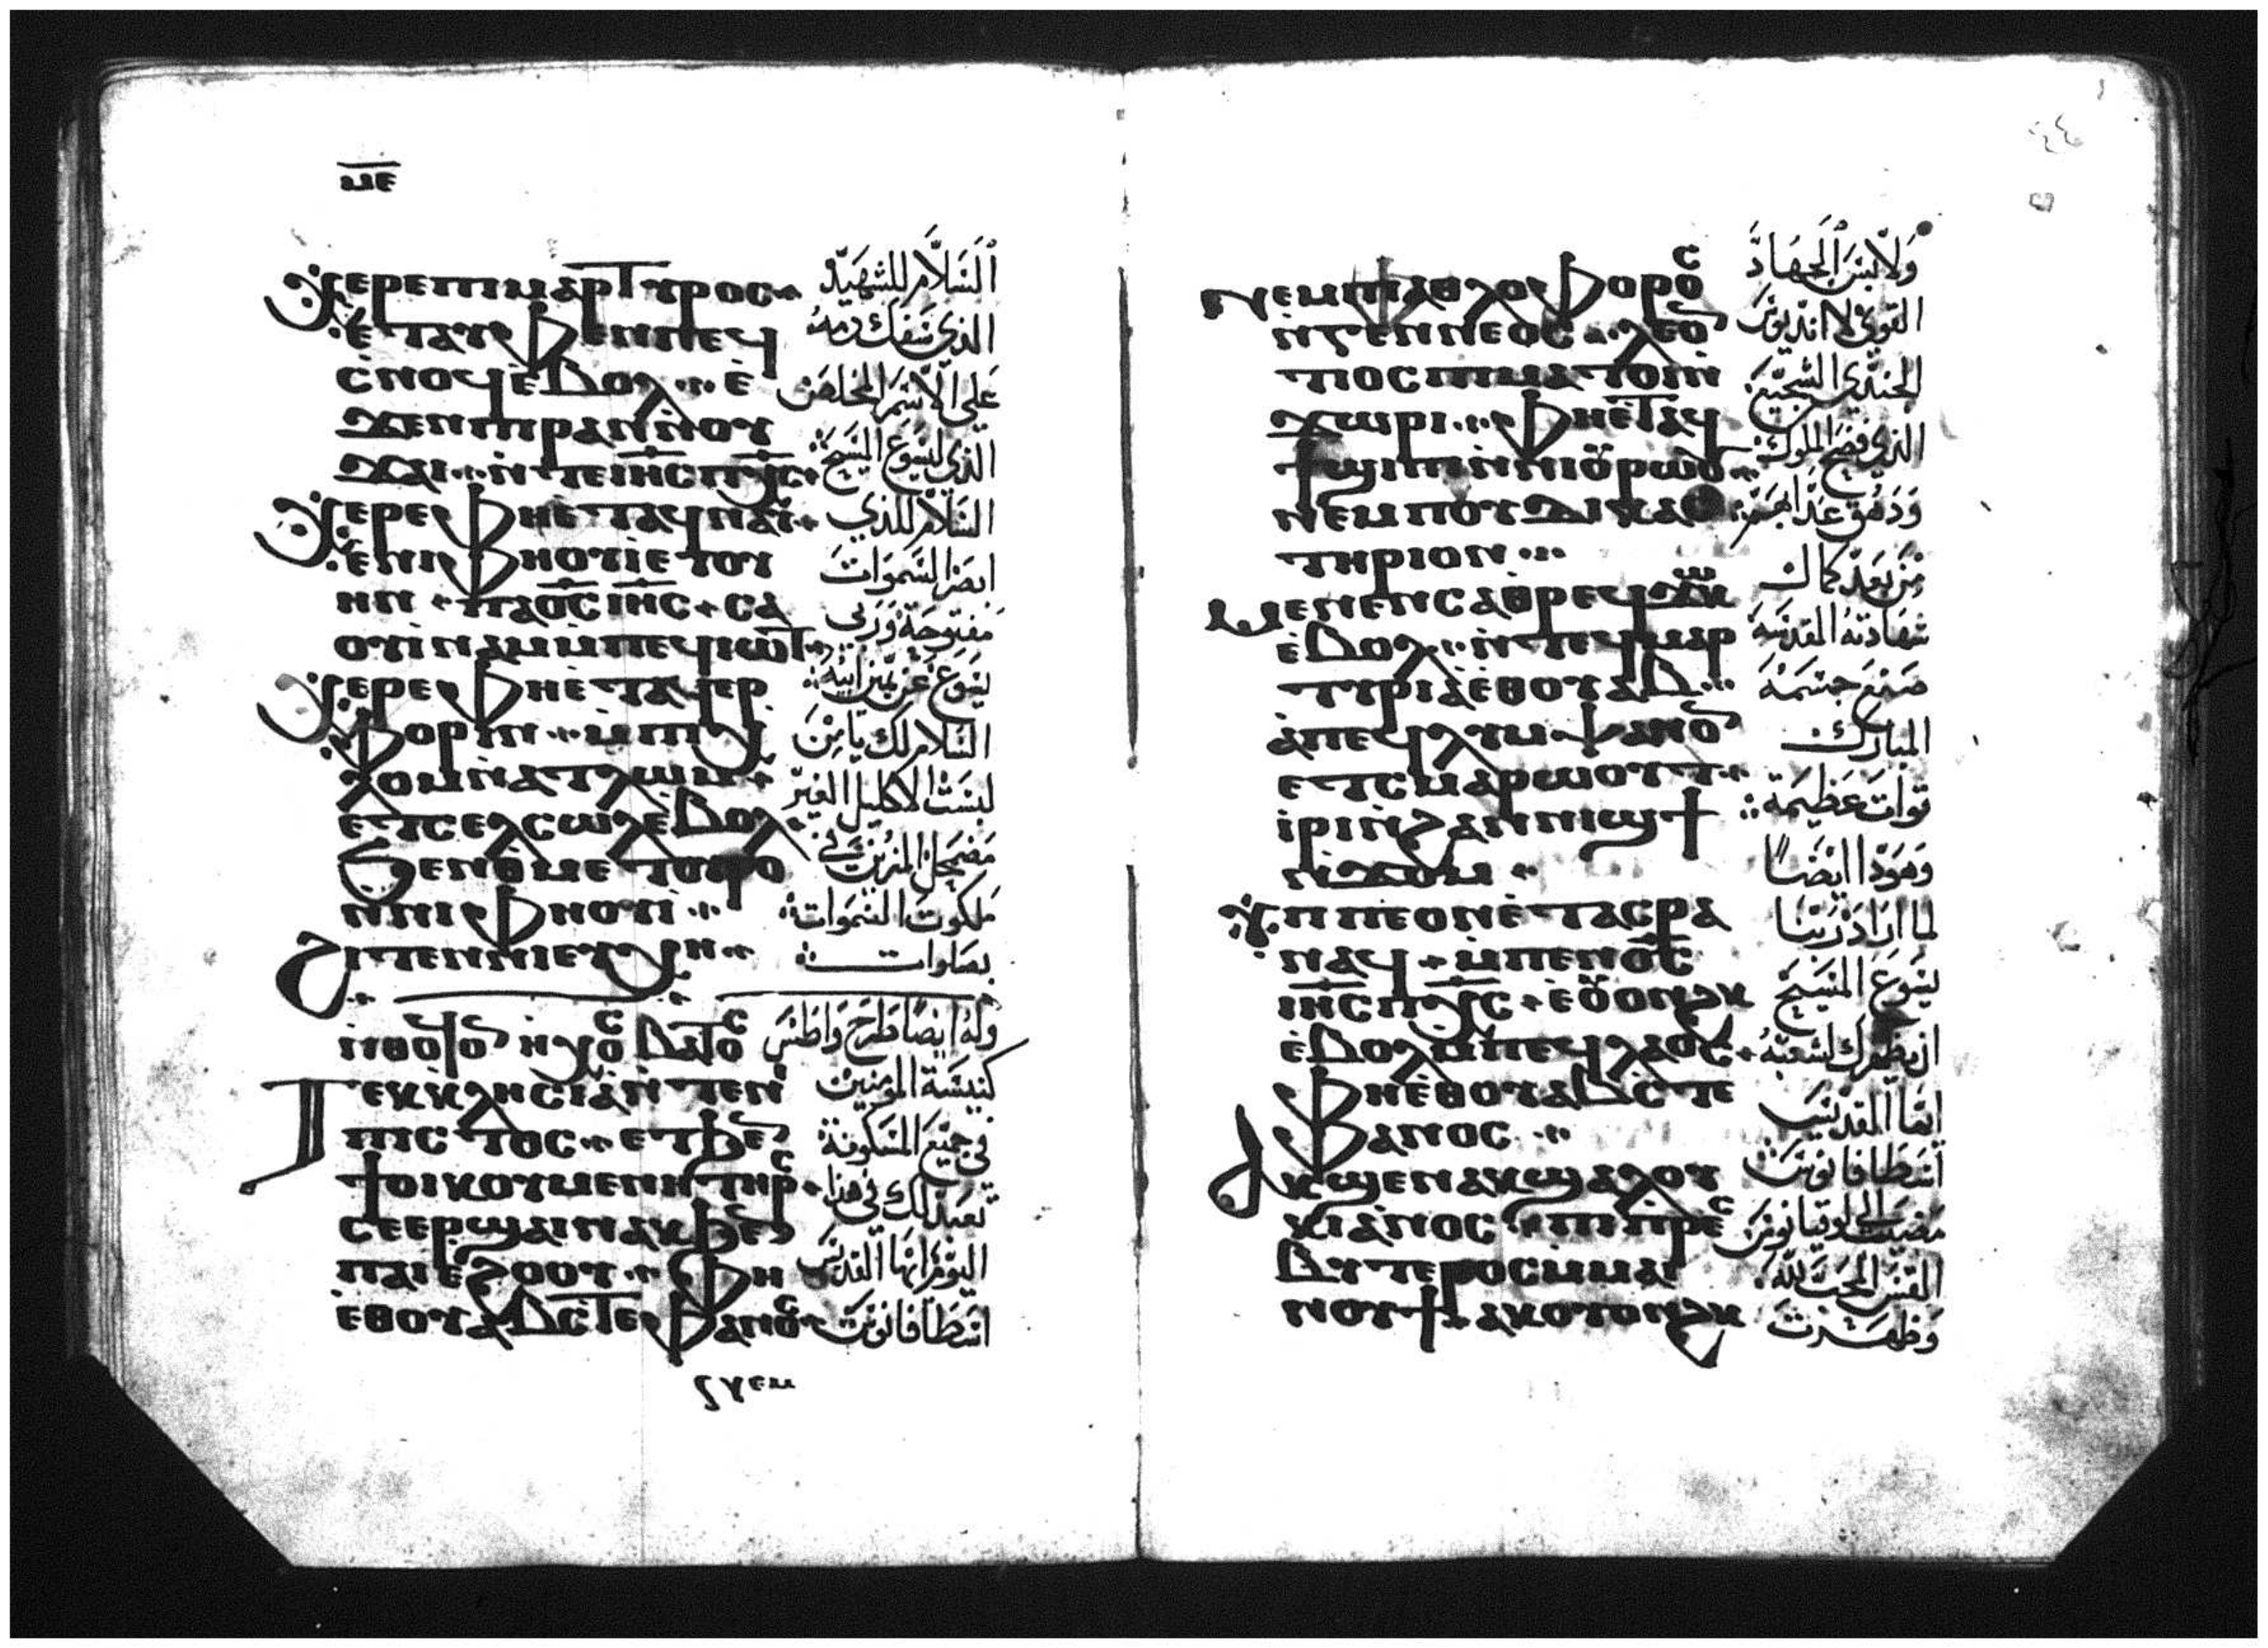 ⲙⲉ
Ⲭⲉⲣⲉ ⲡⲓⲙⲁⲣⲧⲩⲣⲟⲥ
ⲉⲧⲁⲩⲫⲉⲛ ⲡⲉϥ
ⲥⲛⲟϥ ⲉⲃⲟⲗ ⲉ
ϫⲉⲛ ⲡⲓⲣⲁⲛ ⲛⲟⲩ
ϫⲁⲓ ⲛⲧⲉ ⲓⲏⲥ ⲡⲭⲥ
Ⲭⲉⲣⲉ ⲫⲏ ⲉⲧⲁϥⲛⲁⲩ
ⲉⲛⲓⲫⲏⲟⲩⲓ ⲉⲧⲟⲩ
ⲏⲛ ⲡⲁⲟⲥ ⲓⲏⲥ ⲥⲁ
ⲟⲩⲓⲛⲁⲙ ⲙⲡⲉϥⲓⲱⲧ
Ⲭⲉⲣⲉ ⲫⲏ ⲉⲧⲁϥⲉⲣ
ⲫⲟⲣⲓⲛ ⲙⲡⲓⲭ
ⲗⲟⲙ ⲛⲁⲧⲗⲱⲙ
ⲉⲧⲥⲉⲗⲥⲱⲗ ⲉⲃⲟⲗ
ϧⲉⲛ ⲑⲙⲉⲧⲟⲩⲣⲟ
ⲛⲛⲓⲫⲏⲟⲩⲓ
Ϩⲓⲧⲉⲛ ⲛⲓⲉⲩⲭⲏ
Ϯⲉⲕⲕⲗⲏⲥⲓⲁ ⲛⲧⲉⲛ
ⲡⲓⲥⲧⲟⲥ ⲉⲧϧⲉ
ϯⲟⲓⲕⲟⲩⲙⲉⲛⲏ ⲧⲏⲣⲥ
ⲥⲉⲉⲣϣⲁⲓ ⲛⲁⲕ ϧⲉ
ⲡⲁⲓⲉϩⲟⲟⲩ ⲫⲏ
ⲉⲑⲟⲩⲁⲃ ⲥⲧⲉⲫⲁⲛⲟⲥ
السلام للشهيد
الذي سفك دمه
على الاسم المخلص
الذي ليسوع المسيح
السلام للذي
ابصر السموات
مفتوحة وربي
يسوع عن يمين ابيه
السلام لك يا من
لبست الاكليل الغير
مضمحل المزين في
ملكوت السموات
بصلوات
وله ايضا طرح واطس
كنيسة المومنين
في جميع المسكونة
تعيد لك في هذا
اليوم ايها القديس
اسطافانوس
Ⲛⲉⲙ ⲡⲓⲁⲑⲗⲟⲫⲟⲣⲟⲥ
ⲛⲅⲉⲛⲛⲉⲟⲥ ⲗⲉⲟ
ⲧⲓⲟⲥ ⲡⲓⲙⲁⲧⲟⲓ ⲛ
ϫⲱⲣⲓ ⲫⲏ ⲉⲧⲁϥ
ϯϣⲓⲡⲓ ⲛⲛⲓⲟⲩⲣⲱⲟⲩ
ⲛⲉⲙ ⲡⲟⲩⲇⲓⲕⲁⲥ
ⲧⲏⲣⲓⲟⲛ
Ⲙⲉⲛⲉⲛⲥⲁ ⲑⲣⲉϥϫⲱⲕ
ⲉⲃⲟⲗ ⲛⲧⲉϥⲙⲁⲣ
ⲧⲩⲣⲓⲁ ⲉⲑⲟⲩⲁⲃ
ⲁⲡⲉϥⲗⲩⲙⲯⲁⲛⲟ
ⲉⲧⲥⲙⲁⲣⲱⲟⲩⲧ
ⲓⲣⲓ ⲛϩⲁⲛⲛⲓϣϯ
ⲛϫⲟⲙ
Ⲩⲡⲡⲉ ⲟⲛ ⲉⲧⲁⲥⲣⲁ
ⲛⲁϥ ⲙⲡⲉⲛⲟⲥ
ⲓⲏⲥ ⲡⲭⲥ ⲉⲟⲩⲟⲛϩⲕ
ⲉⲃⲟⲗ ⲙⲡⲉϥⲗⲁⲟⲥ
ⲫⲏ ⲉⲑⲟⲩⲁⲃ ⲥⲧⲉ
ⲫⲁⲛⲟⲥ
Ⲁⲕϣⲉⲛⲁⲕ ϣⲁ ⲗⲟⲩ
ⲕⲓⲁⲛⲟⲥ ⲡⲓⲡⲣⲉⲥ
ⲃⲩⲧⲉⲣⲟⲥ ⲙⲙⲁⲓ
ⲛⲟⲩϯ ⲁⲕⲟⲩⲟⲛϩⲕ
ولابس الجهاد
القوي لاانديوس
الجندي الشجيع
الذي فضح الملوك
من بعد كمال
شهادته المقدسة
صنع جسمه
المبارك
قوات عظيمة
وهوذا ايضا
لما اراد ربنا
يسوع المسيح
ان يظهرك لشعبه
ايها القديس
اسطافانوس
مضيت الى لوقيانوس
القس المحب لله
وظهرت